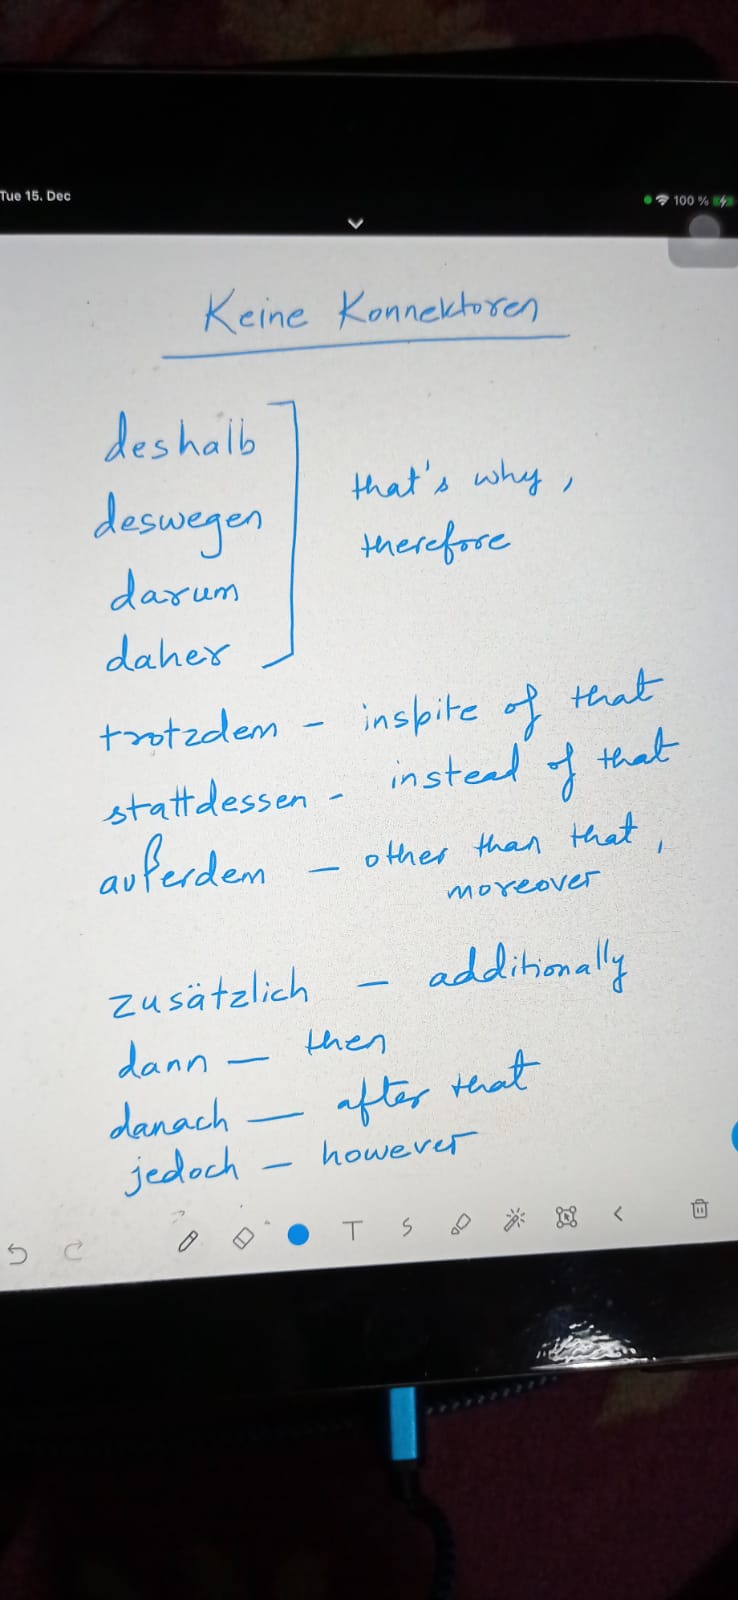 Tue 15. Dec
100 %
Keine Konnektoren
deshalb
deswegen
that's why,
therefore
darum
daher
trotzdem - inspite of that
stattdessen - instead of that
außerdem - other than that,
moreover
zusätzlich - additionally
dann - then
danach - after that
jedoch - however
T